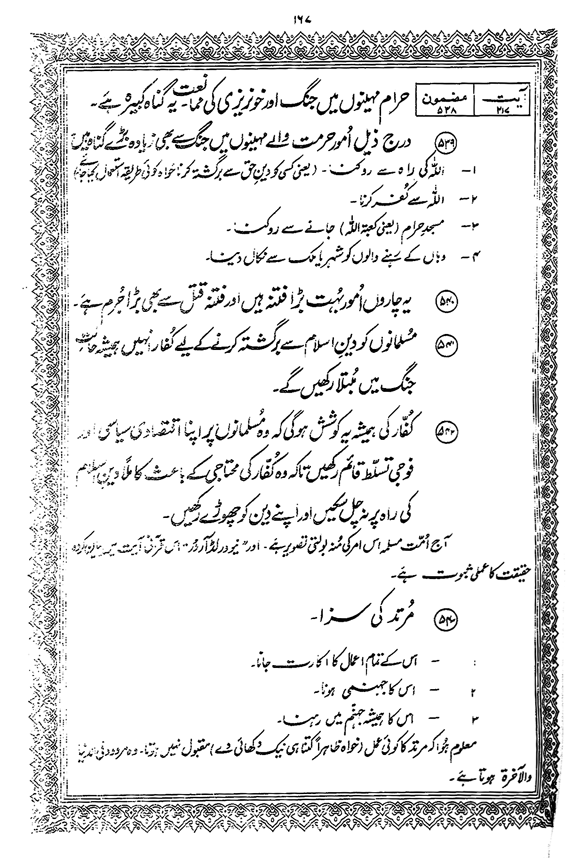 ۱۶۷
آیت ۲۱۷ مضمون ۵۳۸ حرام مہینوں میں جنگ اور خونریزی کی ممانعت۔ یہ گناہ کبیرہ ہے۔
۵۳۹ درج ذیل اُمور حرمت والے مہینوں میں جنگ سے بھی زیادہ بڑے گناہ ہیں
۱- اللہ کی راہ سے روکنا۔ (یعنی کسی کو دینِ حق سے برگشتہ کرنا خواہ کوئی طریقہ استعمال کیا جائے)
۲- اللہ سے کُفر کرنا۔
۳- مسجدِ حرام (یعنی کعبۃ اللہ) جانے سے روکنا۔
۴- وہاں کے رہنے والوں کو شہر یا ملک سے نکال دینا۔
۵۴۰ یہ چاروں اُمور بُہت بڑا فتنہ ہیں اور فتنہ قتل سے بھی بڑا جُرم ہے۔
۵۴۱ مُسلمانوں کو دینِ اسلام سے برگشتہ کرنے کے لیے کُفار انہیں ہمیشہ حالتِ
جنگ میں مُبتلا رکھیں گے۔
۵۴۲ کُفّار کی ہمیشہ یہ کوشش ہوگی کہ وہ مُسلمانوں پر اپنا اقتصادی سیاسی اور
فوجی تسلّط قائم رکھیں تاکہ وہ کُفّار کی محتاجی کے باعث کاملًا دینِ اسلام
کی راہ پر نہ چل سکیں اور اپنے دین کو چھوڑے رکھیں۔
آج اُمّت مسلمہ اس امر کی مُنہ بولتی تصویر ہے۔ اور "نیو ورلڈ آرڈر" اس قرآنی آیت میں بیان کردہ
حقیقت کا عملی ثبوت ہے۔
۵۴۳ مُرتد کی سزا۔
۱ - اس کے تمام اعمال کا اکارت جانا۔
۲ - اس کا جہنمی ہونا۔
۳ - اس کا ہمیشہ جہنّم میں رہنا۔
معلوم ہُوا کہ مُرتد کا کوئی عمل (خواہ ظاہراً کتنا ہی نیک دکھائی دے) مقبول نہیں ہوتا۔ وہ مردود فی الدنیا
والآخرۃ ہوتا ہے۔